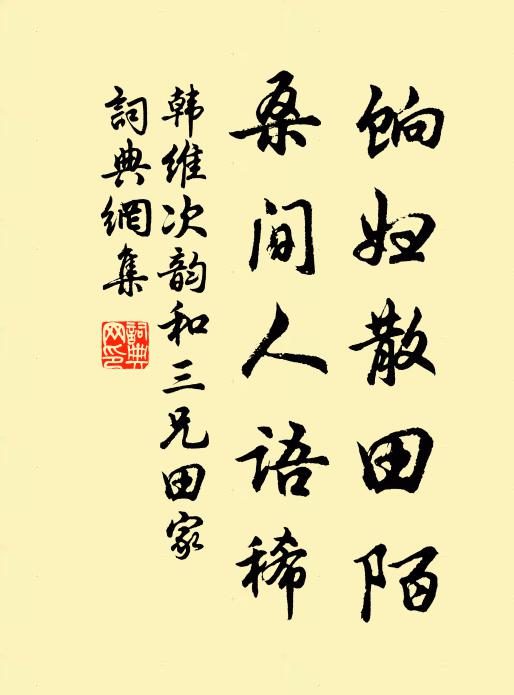 饷妇散田陌
桑间人语稀
韩维次韵和三兄田家
詞典網集
詞典网印